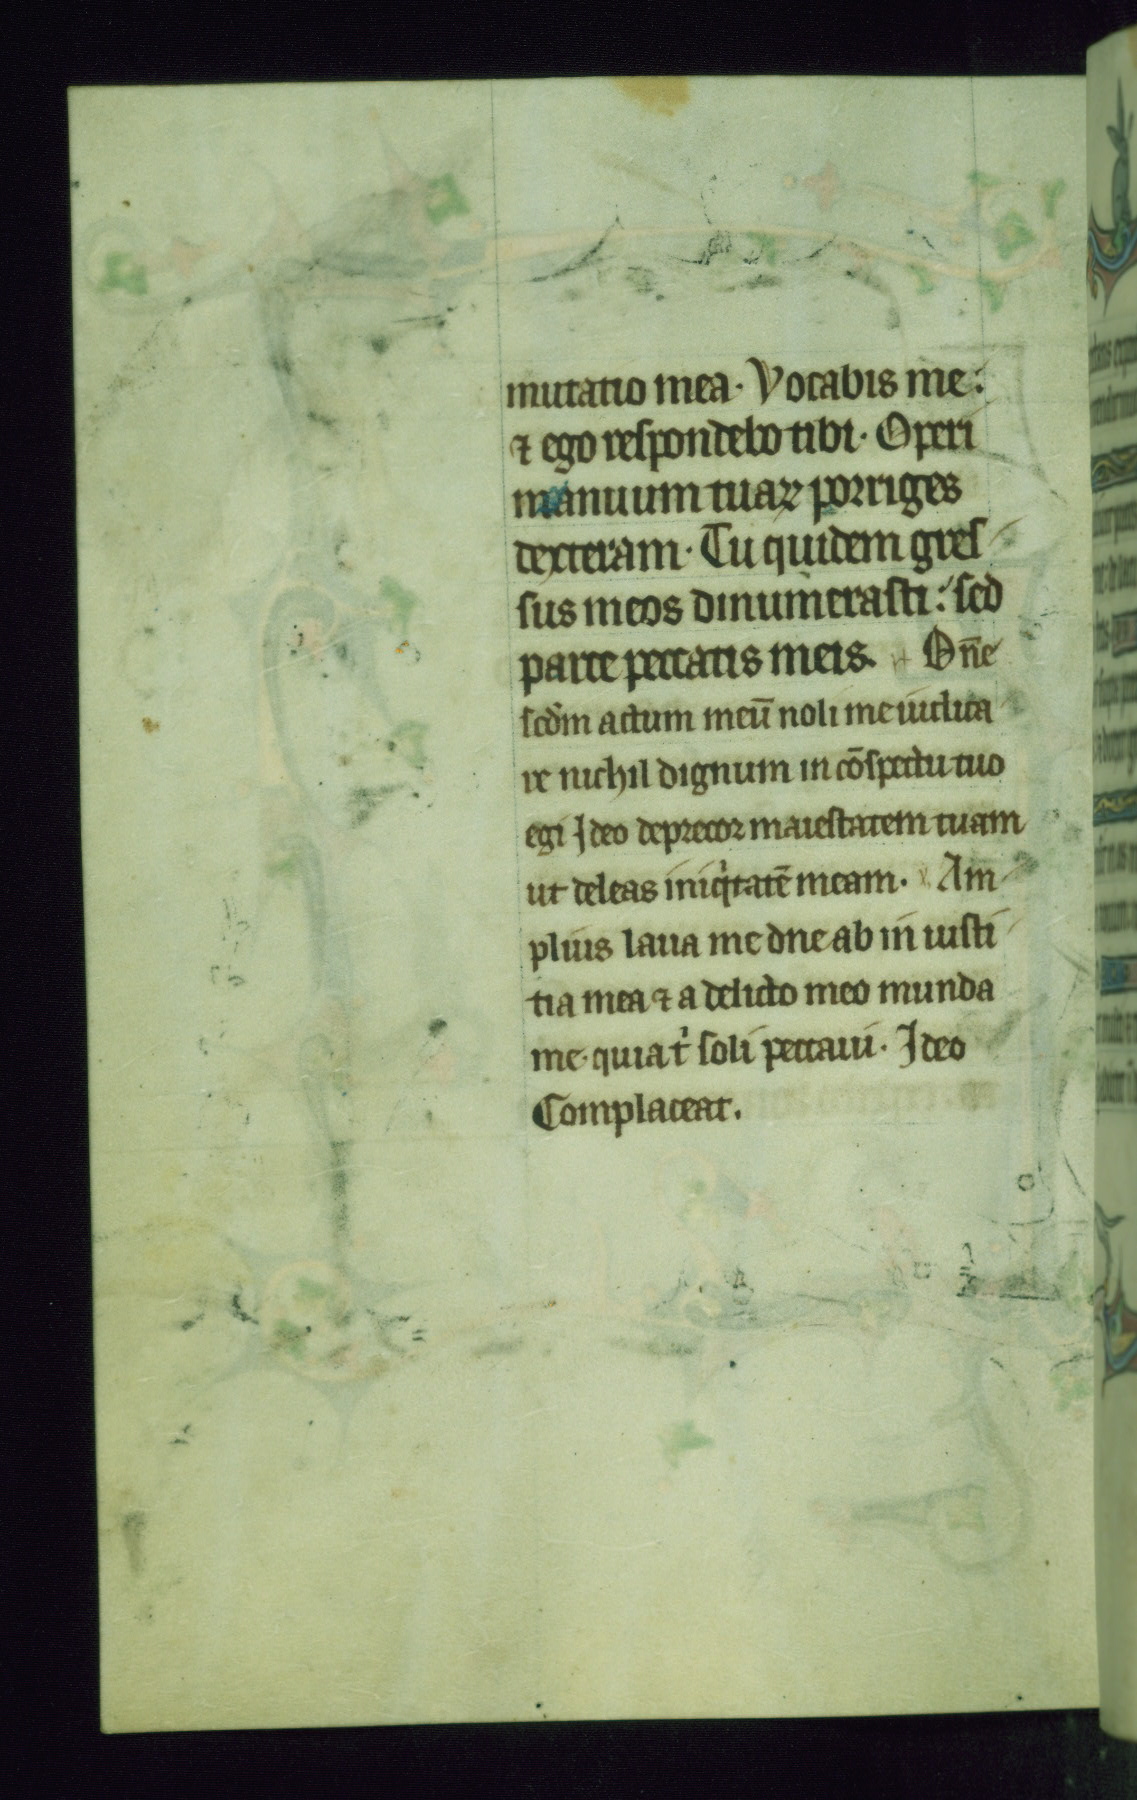 mutatio mea. Vocabis me:
⁊ ego respondebo tibi. Operi
manuum tuaꝝ porriges
dexteram. Tu quidem gres
sus meos dinumerasti: sed
parce peccatis meis. Dn̄e
scd̄m actum meū noli me iudica
re nichil dignum in cōspectu tuo
egi Ideo deprecor maiestatem tuam
ut deleas iniqͥtatē meam. Am
plius laua me dne ab in iusti
tia mea ⁊ a delicto meo munda
me. quia tͥ soli peccaui. Ideo
Complaceat.